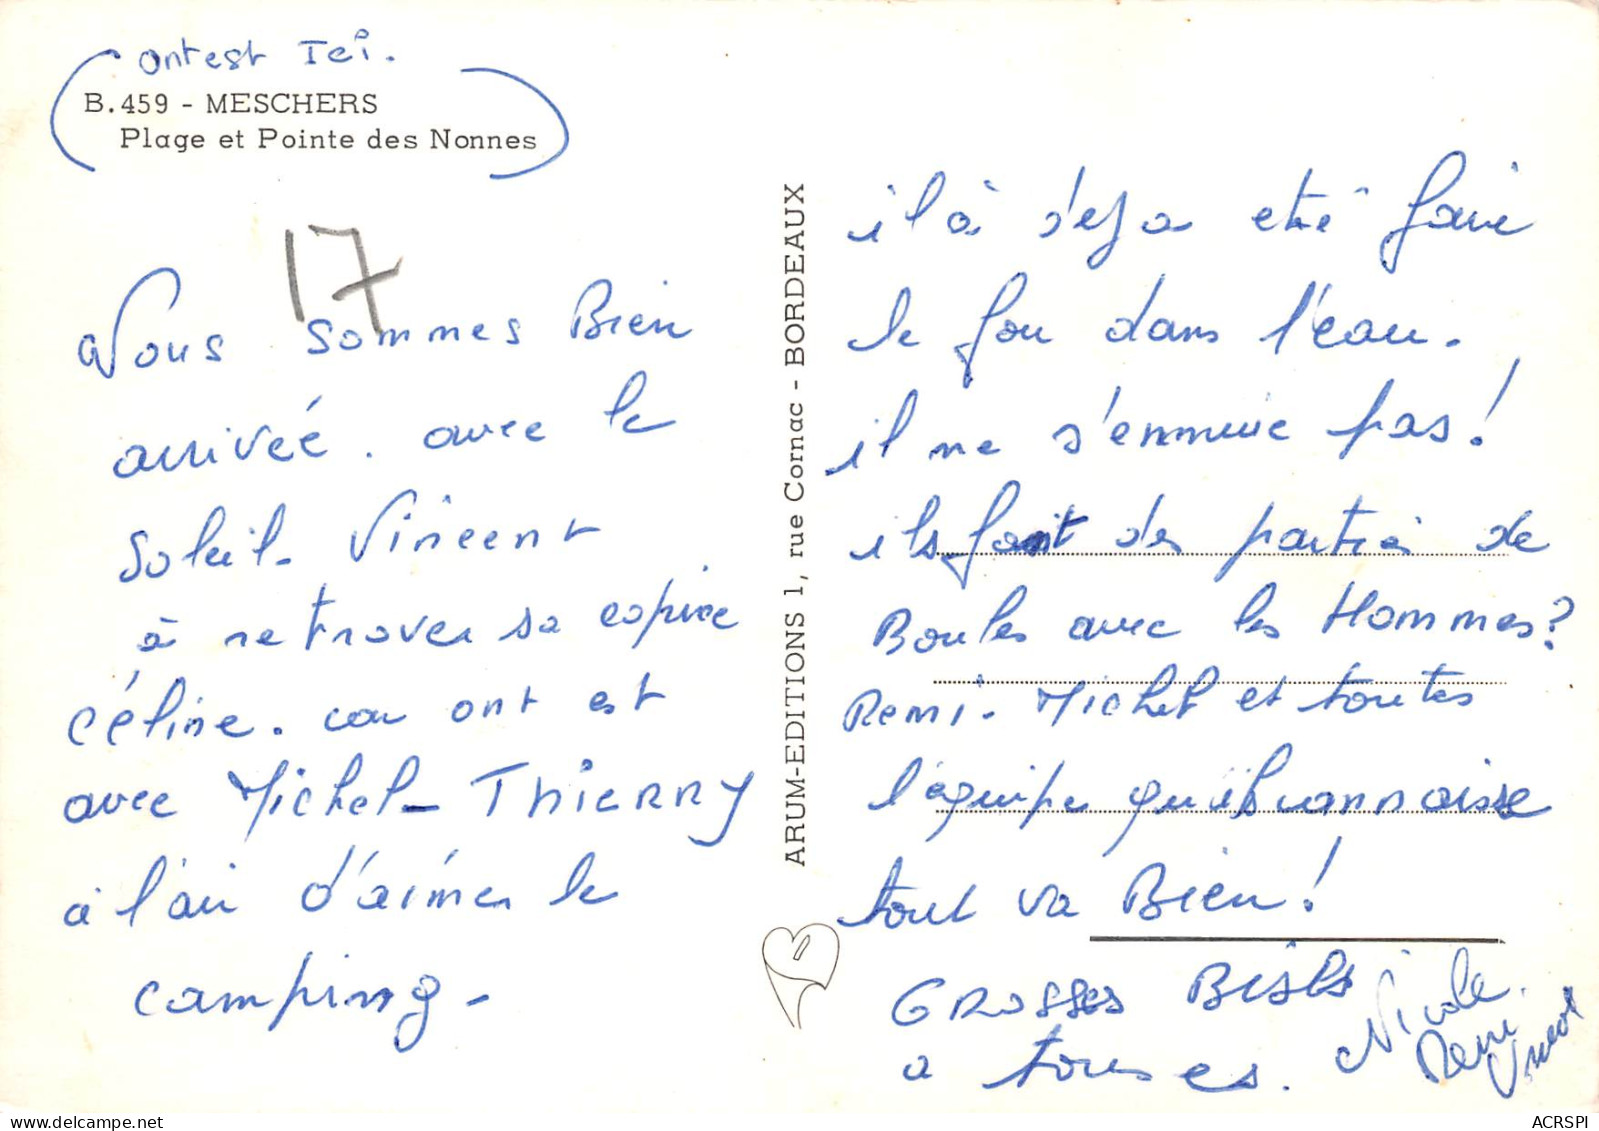 ontest Ici.
B.459 - MESCHERS
Plage et Pointe des Nonnes
17
Nous sommes Bien
arrivéé. avec le
soleil. Vincent
à retrover sa copine
Céline. car ont est
avec Michel - THIERRY
à l'air d'aimer le
camping -
ARUM-EDITIONS 1, rue Cornac - BORDEAUX
il à deja eté faire
le fou dans l'eau.
il ne s'ennuie pas!
ils font des partiés de
Boules avec les Hommes?
Remi. Michel et toutes
l'équipe qu'ils connaisse
tout va Bien!
GROSSES BISES
a toutes.
Nicole.
Remi
Vincent
ACRSPI